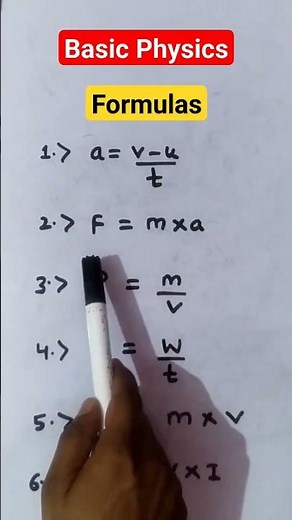 Basic Physics
Formulas
1.> a = v-u/t
2.> F = m x a
3.> = m/v
4.> = W/t
5.> m x v
6. x I